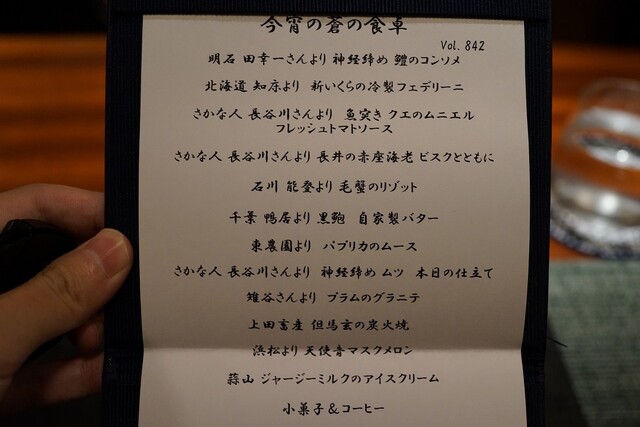 今宵の蒼の食卓
Vol. 842
明石 田幸一さんより 神経締め 鱧のコンソメ
北海道 知床より 新いくらの冷製フェデリーニ
さかな人 長谷川さんより 魚突き クエのムニエル
フレッシュトマトソース
さかな人 長谷川さんより 長井の赤座海老 ビスクとともに
石川 能登より 毛蟹のリゾット
千葉 鴨居より 黒鮑 自家製バター
東農園より パプリカのムース
さかな人 長谷川さんより 神経締め ムツ 本日の仕立て
雉谷さんより プラムのグラニテ
上田畜産 但馬玄の炭火焼
浜松より 天使音マスクメロン
蒜山 ジャージーミルクのアイスクリーム
小菓子&コーヒー